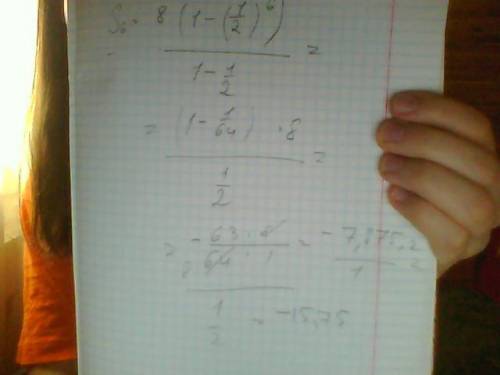 S₆ = 8 (1 - (1/2)^6) / (1 - 1/2) =
= (1 - 1/64) · 8 / (1/2) =
= (-63 · 8 / 64 · 1) / (1/2) = -7,875 · 2 / 1 · 2
= -15,75